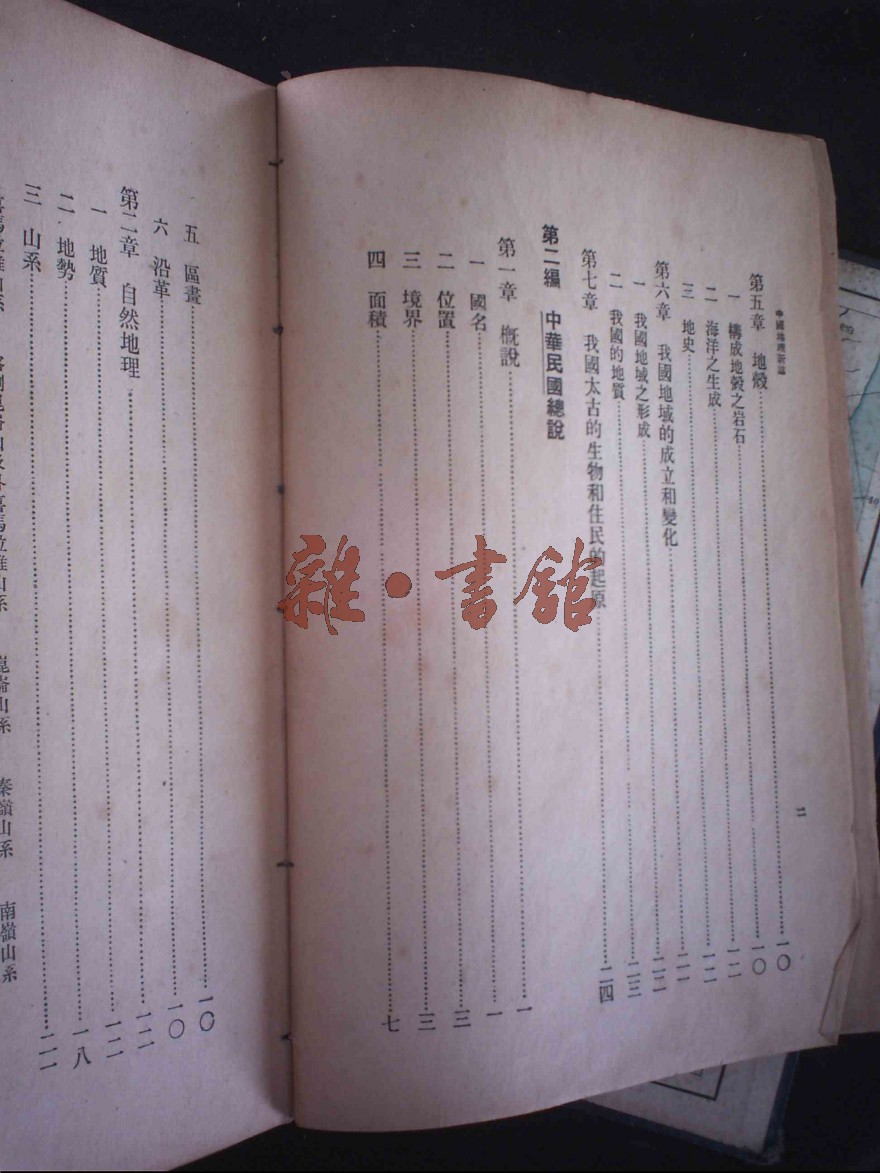 中國地理新誌
第五章 地殼……一〇
一 構成地殼之岩石……一〇
二 海洋之生成……一二
三 地史……一二
第六章 我國地域的成立和變化……二一
一 我國地域之形成……二二
二 我國的地質……二三
第七章 我國太古的生物和住民的起原……二四
第二編 中華民國總說
第一章 概說……一
一 國名……一
二 位置……三
三 境界……三
四 面積……七
二
五 區畫……一〇
六 沿革……一〇
第二章 自然地理……一二
一 地質……一二
二 地勢……一八
三 山系……二一
喜馬拉雅山系 外喜馬拉雅山系 崑崙山系 秦嶺山系 南嶺山系
雜·書館